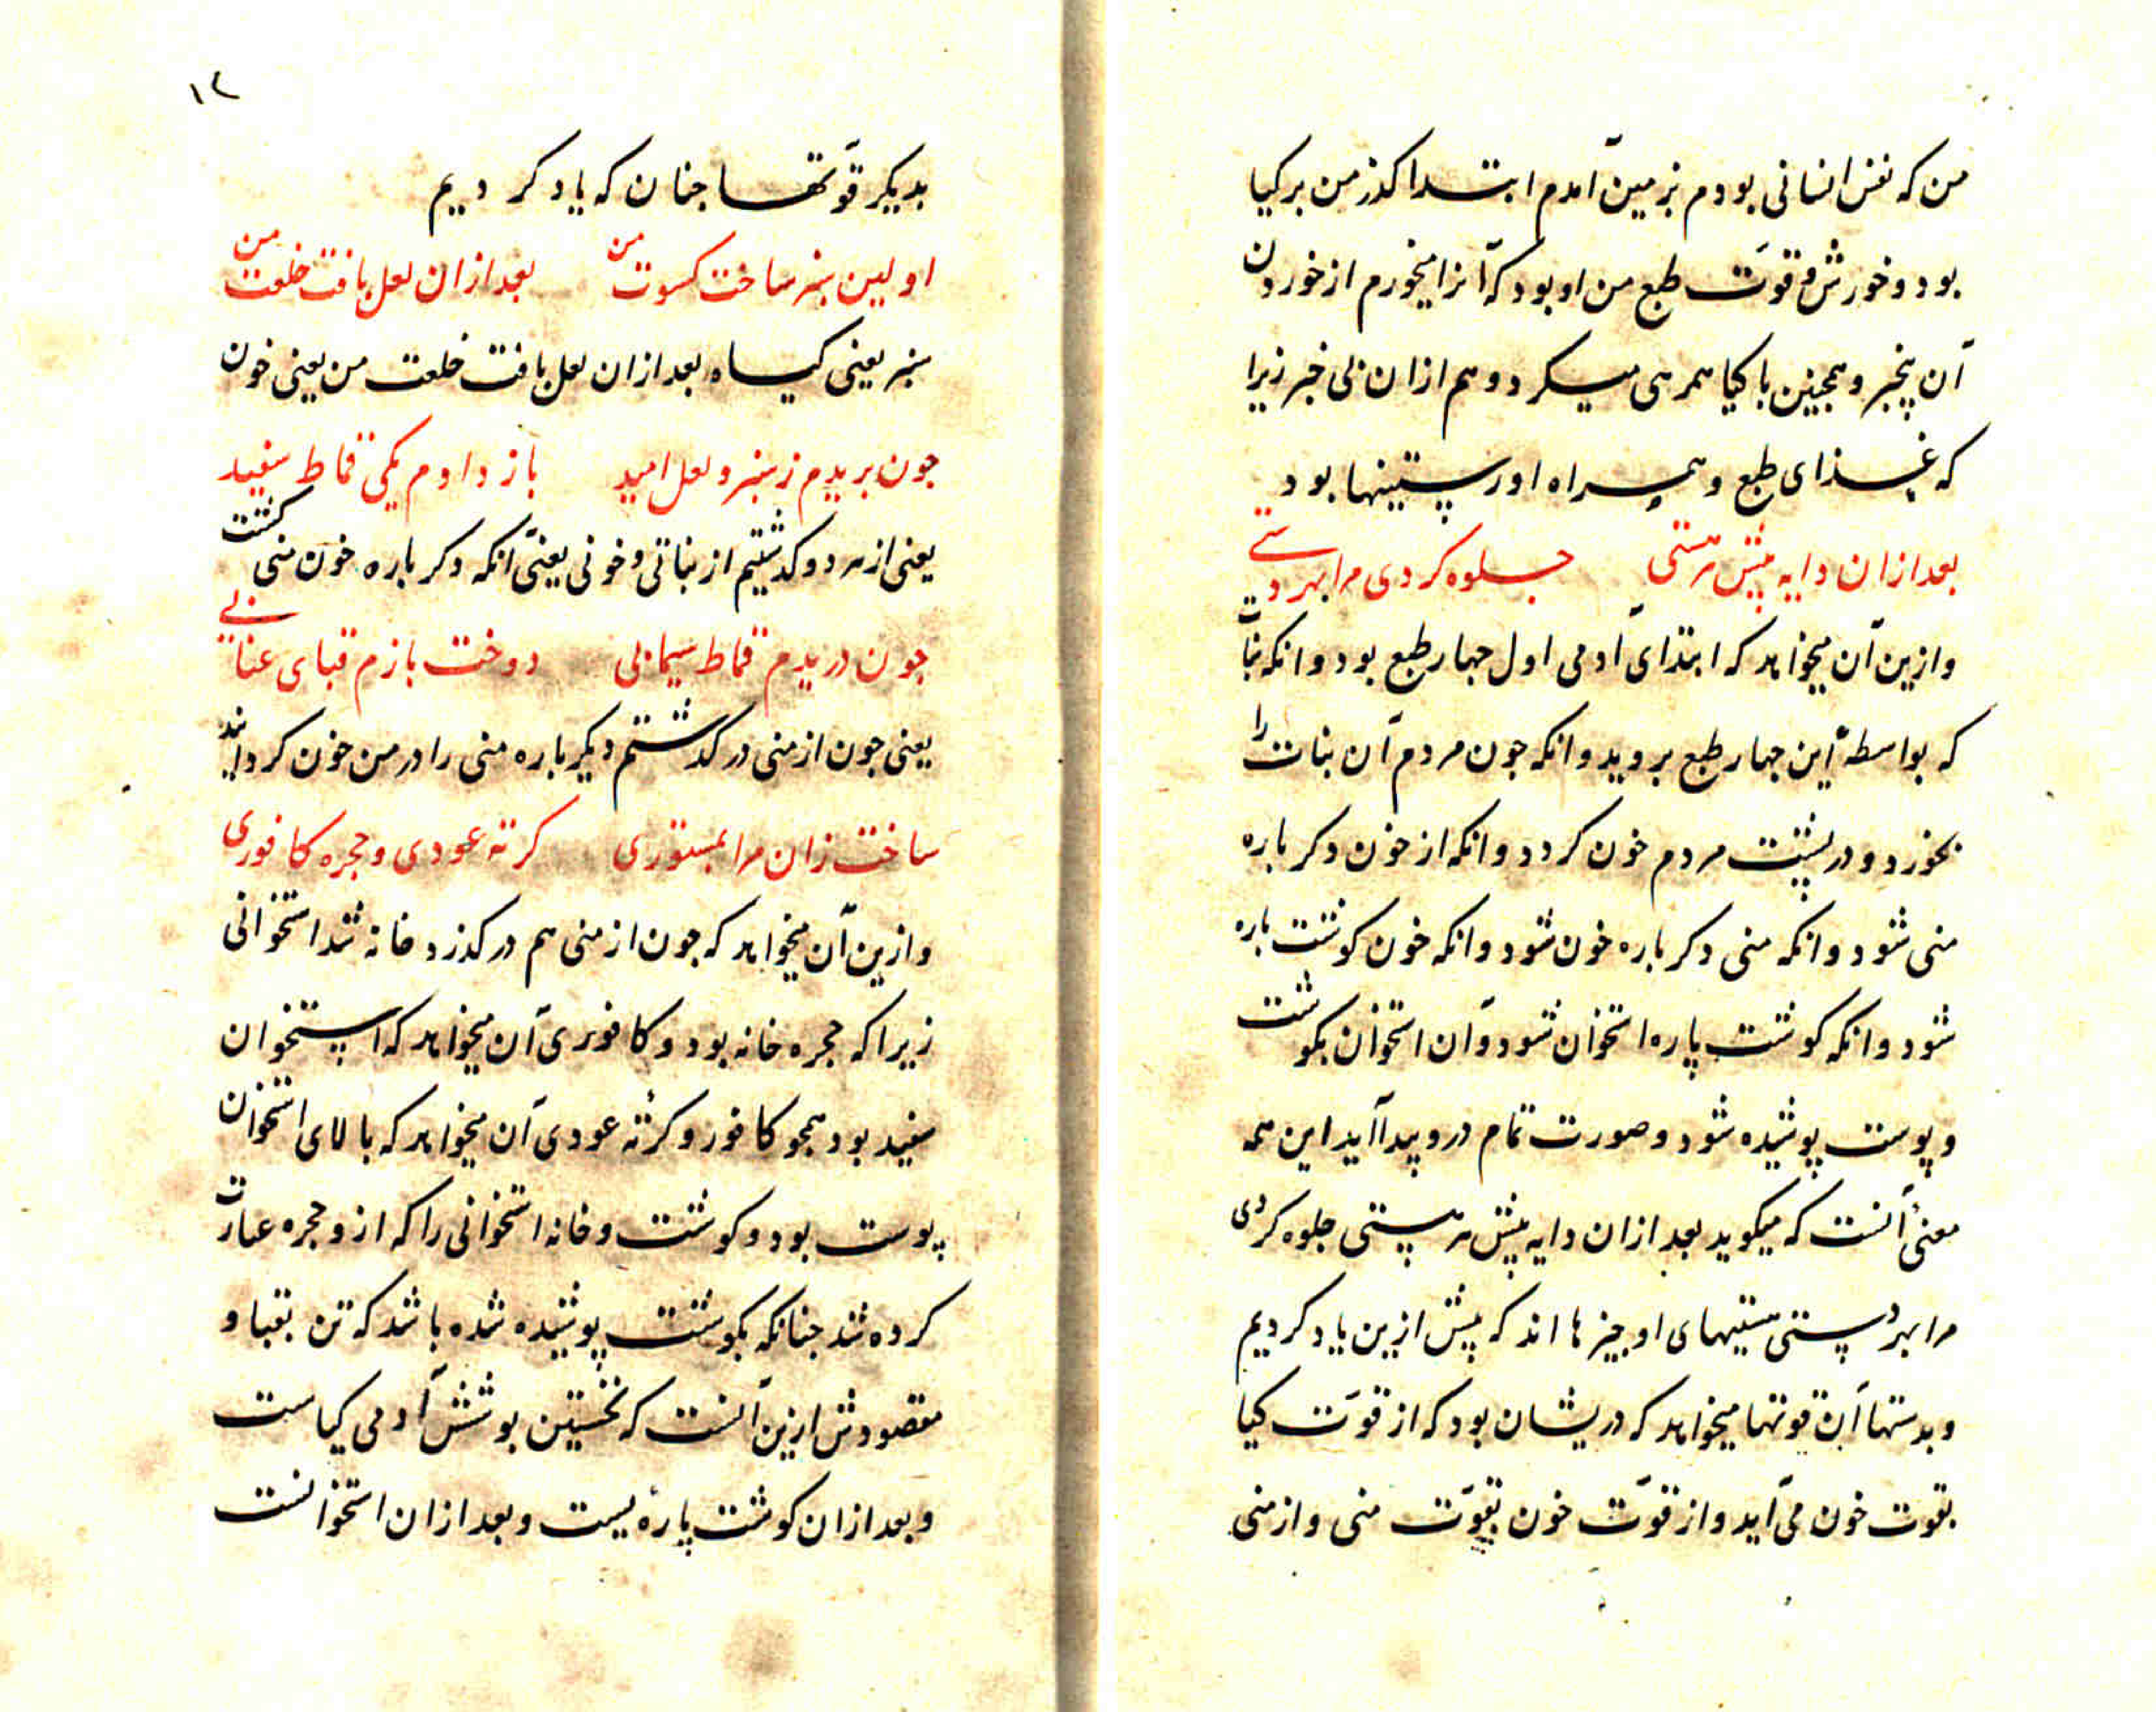 من که نفس انسانی بودم بزمین آمدم ابتدا کذر من بر کیا
بود و خورش و قوّت طبع من او بود که آنرا میخورم از خوردن
آن بیخبر و همچنین با کیا همرهی میکرد و هم ازان بی خبر زیرا
که غذای طبع و همراه او رستینها بود
بعد ازان دایه پیش هر هستی جلوه کردی مرا بهر دستی
و ازین آن میخواهد که ابتدای آدمی اول جهار طبع بود وانکه نبات
که بواسطهٔ این جهار طبع بروید وانکه جون مردم آن نبات را
بخورد و در پشت مردم خون کردد وانکه از خون دکر باره
منی شود وانکه منی دکر باره خون شود وانکه خون کوشت باره
شود وانکه کوشت پاره استخوان شود و آن استخوان بکوشت
و پوست پوشیده شود و صورت تمام درو پیدا آید این همه
معنی آنست که میکوید بعد ازان دایه پیش هر هستی جلوه کردی
مرا بهر دستی هستیهای او جیزها اند که پیش ازین یاد کردیم
و بدستها آن قوتها میخواهد که دریشان بود که از قوّت کیا
بقوت خون می آید و از قوّت خون بقوّت منی و از منی
۱۲
بدیکر قوّتها جنان که یاد کردیم
اولین سبز ساخت کسوت من بعد ازان لعل بافت خلعت من
سبز یعنی کیاه بعد ازان لعل بافت خلعت من یعنی خون
جون بریدم ز سبز و لعل امید باز دادم یکی قماط سفید
یعنی از هر دو کذشتیم از نباتی و خونی یعنی آنکه دکر باره خون منی کشت
جون دریدم قماط سیمابی دوخت بازم قبای عنابی
یعنی جون از منی در کذشتم دیکر باره منی را در من خون کردانید
ساخت زان مرا بمستوری کرته عودی و حجره کافوری
و ازین آن میخواهد که جون از منی هم در کذرد خانه شد استخوانی
زیرا که حجره خانه بود و کافوری آن میخواهد که استخوان
سفید بود همجو کافور و کرته عودی آن میخواهد که بالای استخوان
پوست بود و کوشت و خانه استخوانی را که ازو حجره عبارت
کرده شد جنانکه بکوشت پوشیده شده باشد که تن بقبا و
مقصودش ازین آنست که نخستین بوشش آدمی کیاست
و بعد ازان کوشت پارهٔ یست و بعد ازان استخوانست